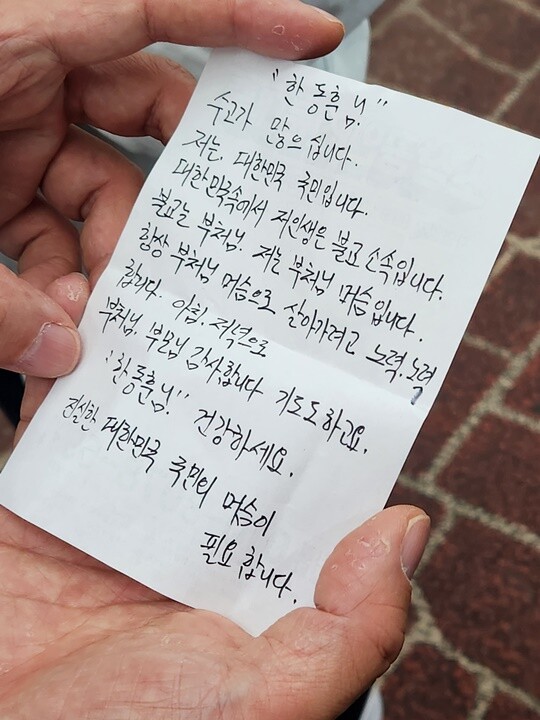 "한동훈님"
수고가 많으십니다.
저는. 대한민국 국민입니다.
대한민국속에서 저인생은 불교 소속입니다.
불교는 부처님. 저는 부처님 머슴입니다.
항상 부처님 머슴으로 살아가려고 노력.노력
합니다. 아침. 저녁으로
부처님. 부모님 감사합니다 기도도하고요.
"한동훈님!" 건강하세요.
진실한 대한민국 국민의 머슴이
필요합니다.